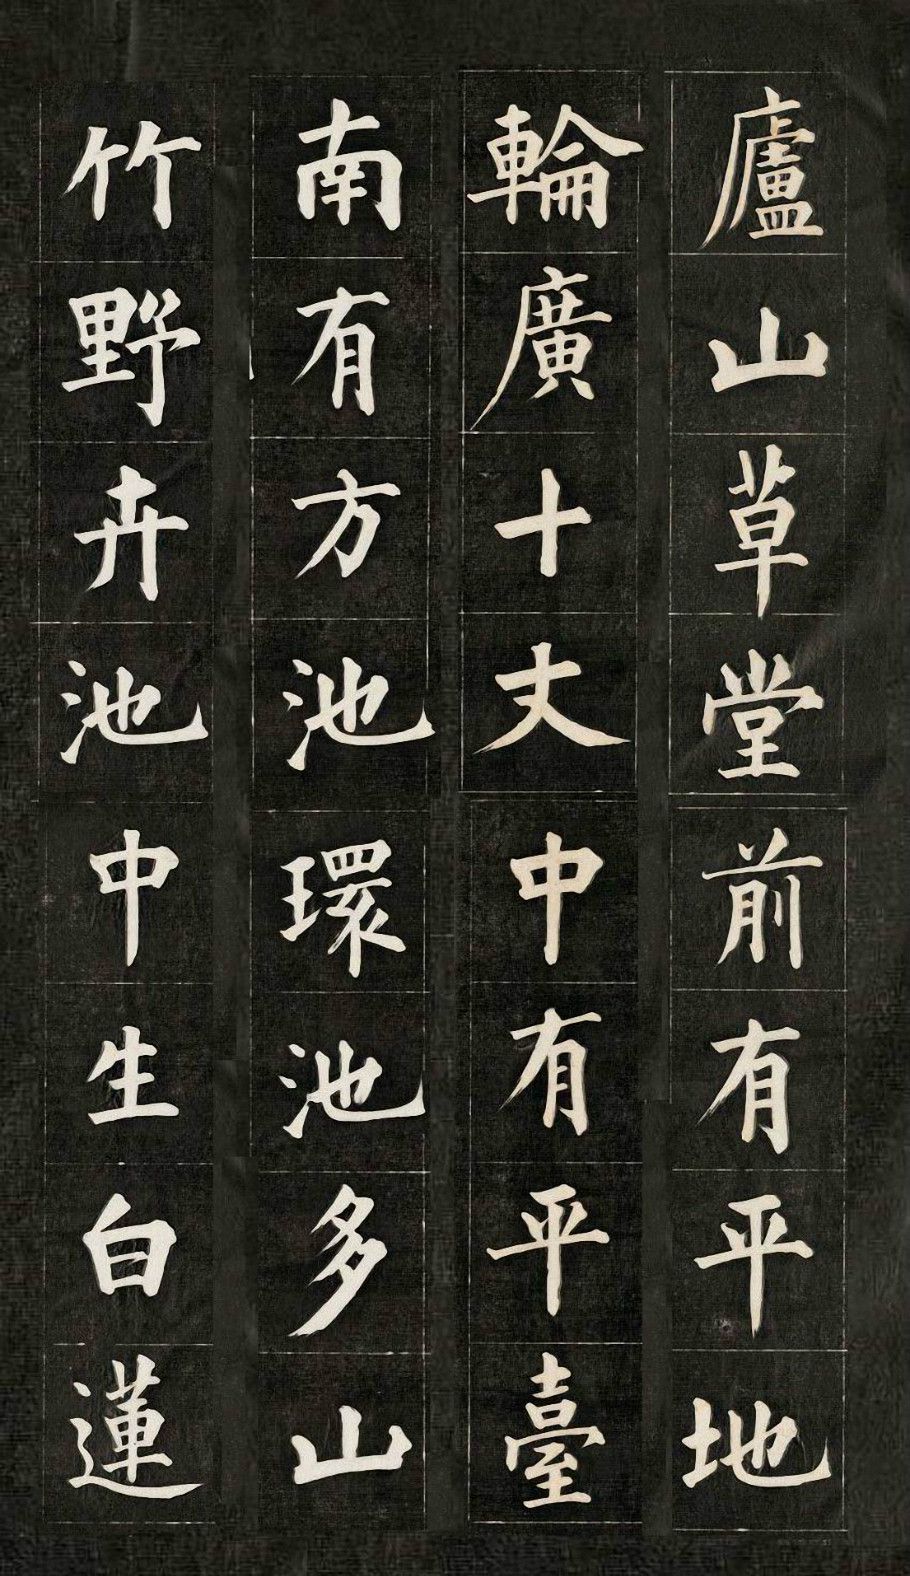 廬山草堂前有平地
輪廣十丈中有平臺
南有方池環池多山
竹野卉池中生白蓮